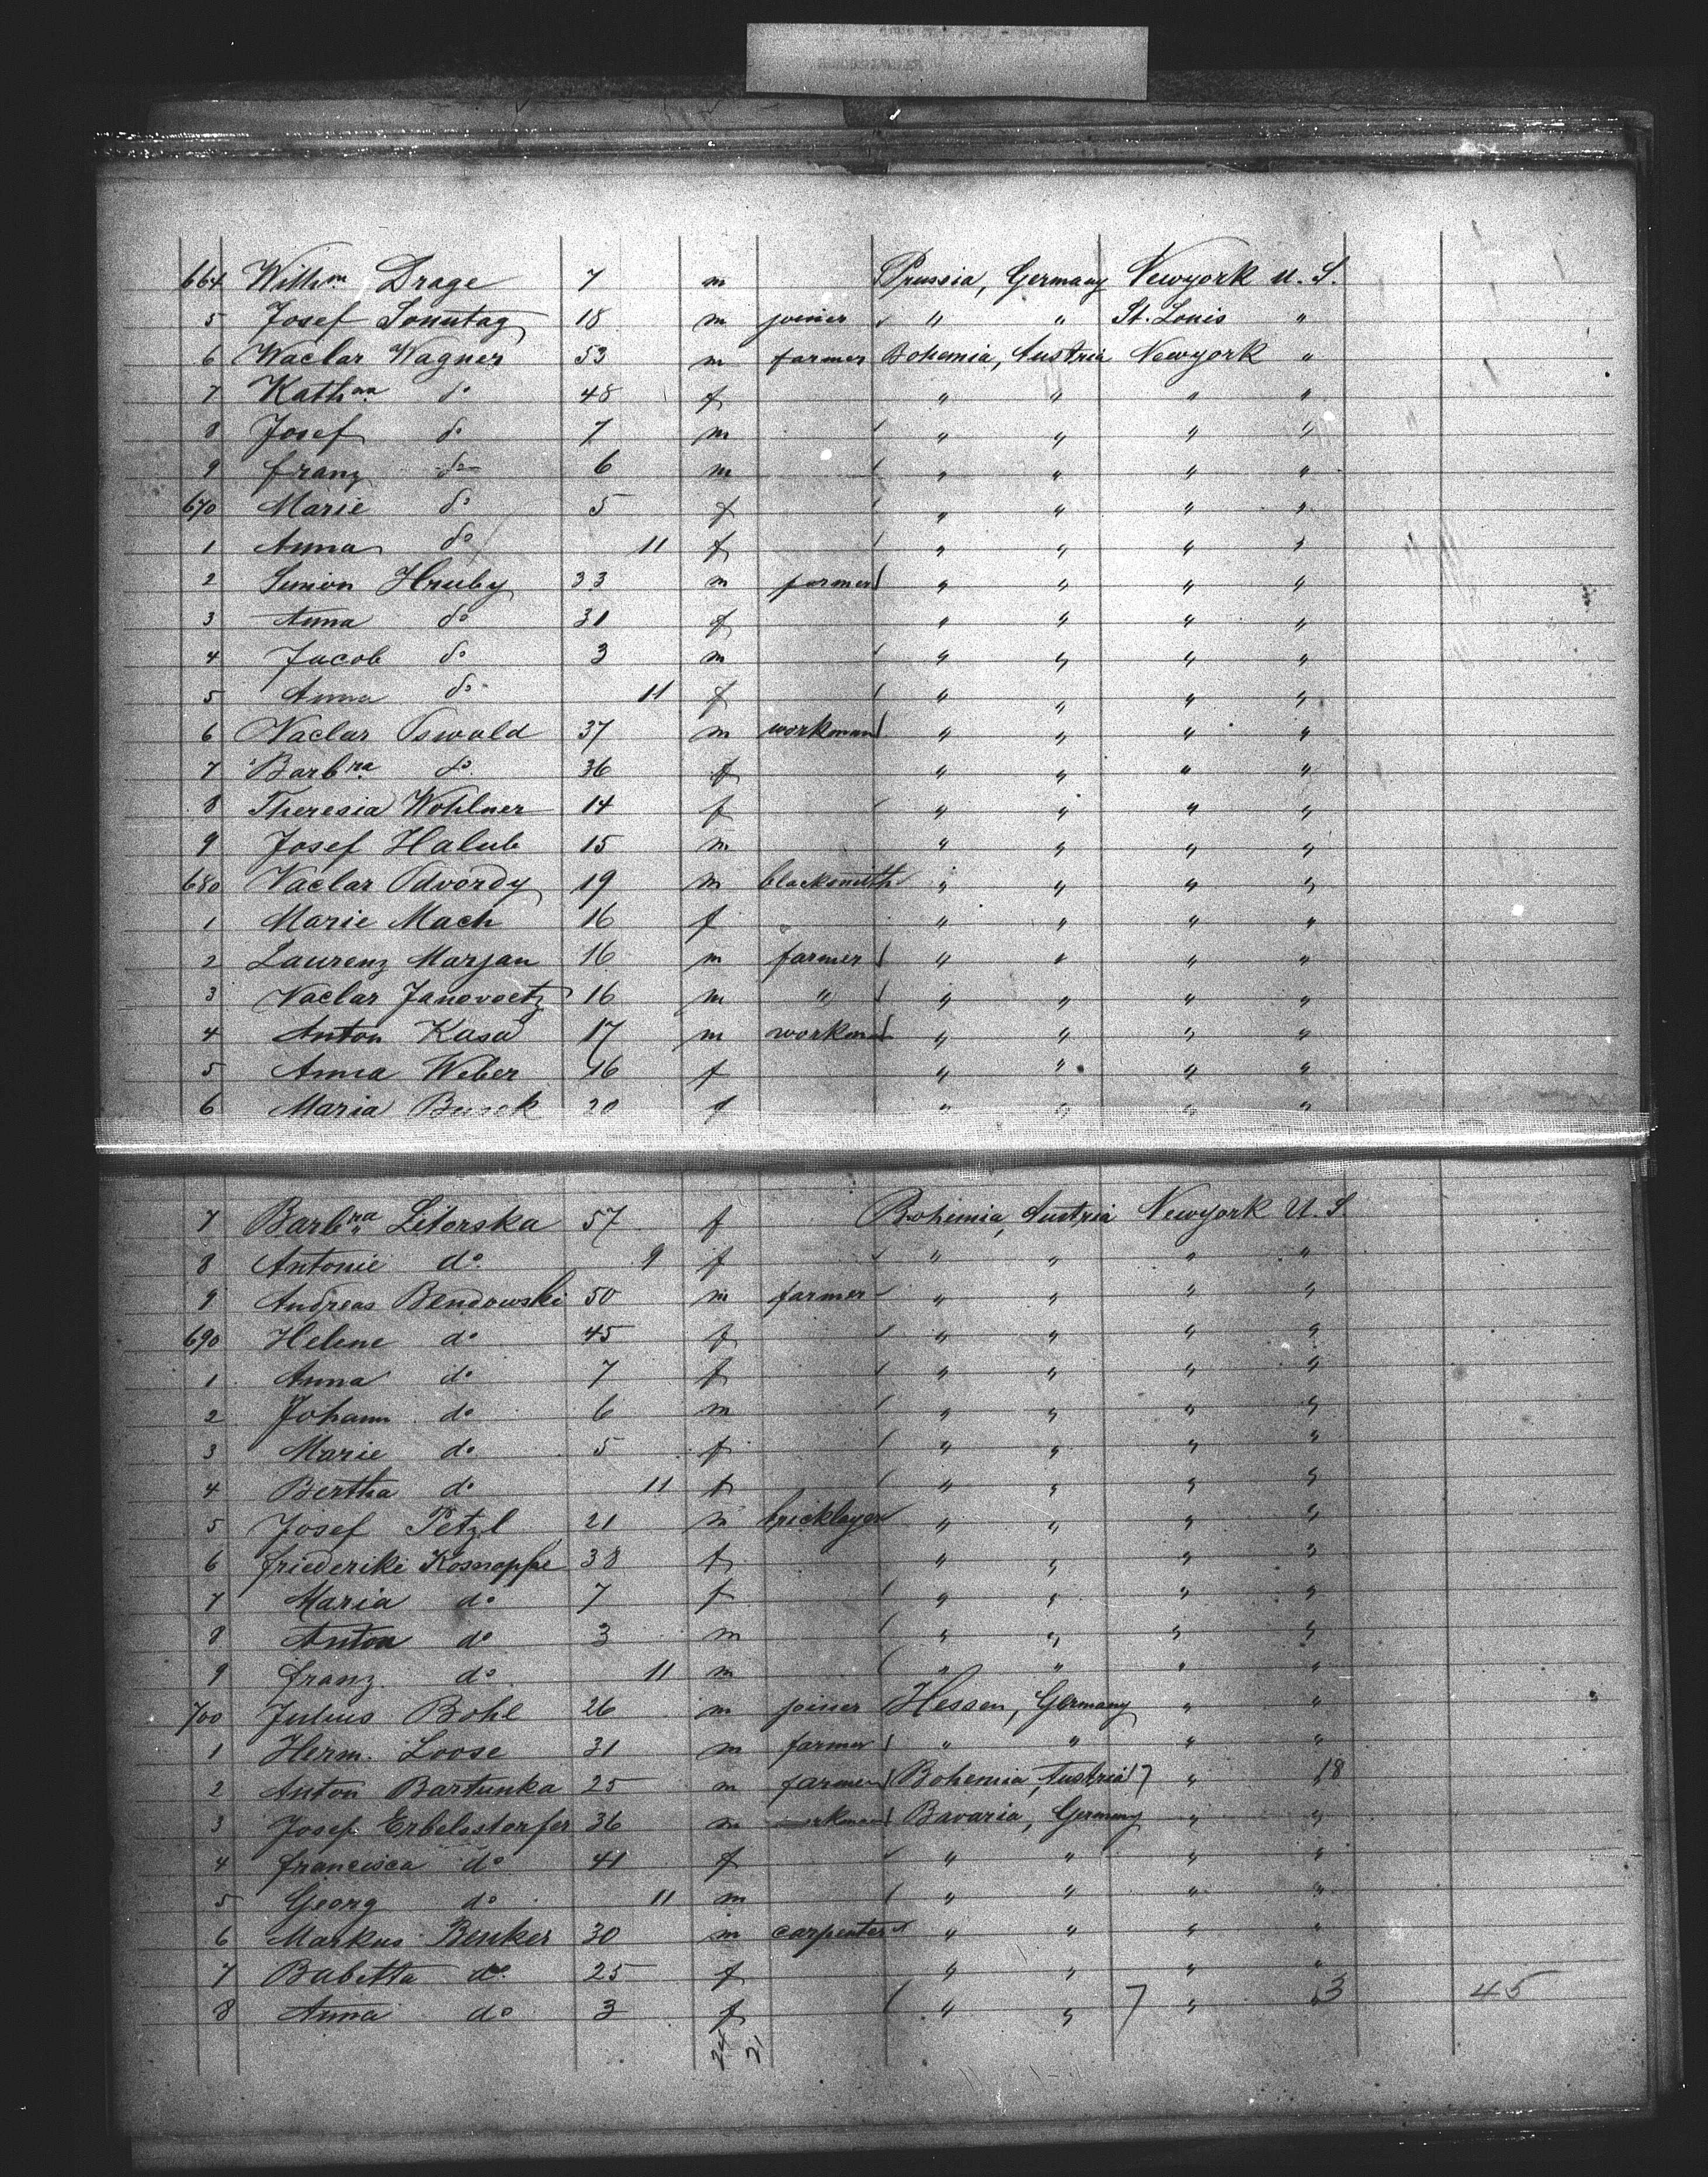 664 Wilhm Drage 7 m Prussia, Germany Newyork U. S.
5 Josef Sonntag 18 m joiner " " St. Louis "
6 Waclav Wagner 53 m farmer Bohemia, Austria Newyork "
7 Kathna do 48 f " " " "
8 Josef do 7 m " " " "
9 Franz do 6 m " " " "
670 Marie do 5 f " " " "
1 Anna do 11 f " " " "
2 Simon Hruby 33 m farmer " " " "
3 Anna do 31 f " " " "
4 Jacob do 3 m " " " "
5 Anna do 11 f " " " "
6 Vaclav Oswald 37 m workman " " " "
7 Barbra do 36 f " " " "
8 Theresia Wohlner 14 f " " " "
9 Josef Halub 15 m " " " "
680 Vaclav Odvordy 19 m blacksmith " " " "
1 Marie Mach 16 f " " " "
2 Laurenz Marjan 16 m farmer " " " "
3 Vaclav Janovoetz 16 m " " " " "
4 Anton Kasa 17 m workman " " " "
5 Anna Weber 16 f " " " "
6 Maria 20 f " " " "
7 Barbra Litorska 57 f Bohemia, Austria Newyork U. S
8 Antonie do 9 f " " " "
9 Andreas Bendowski 50 m farmer " " " "
690 Helene do 45 f " " " "
1 Anna do 7 f " " " "
2 Johann do 6 m " " " "
3 Marie do 5 f " " " "
4 Bertha do 11 f " " " "
5 Josef Petzl 21 m bricklayer " " " "
6 Friederike 38 f " " " "
7 Maria do 7 f " " " "
8 Anton do 3 m " " " "
9 Franz do 11 m " " " "
700 Julius Bohl 26 m joiner Hessen, Germany " "
1 Herm. Loose 31 m farmer " " " "
2 Anton Bartunka 25 m farmer Bohemia, Austria 7 " " 18
3 Josef Erbelsdorfer 36 m workman Bavaria, Germany " "
4 Francisca do 41 f " " " "
5 Georg do 11 m " " " "
6 Markus Benker 30 m carpenter " " " "
7 Babetta do 25 f " " " "
8 Anna do 3 f " " 7 " " 3 45
24 21